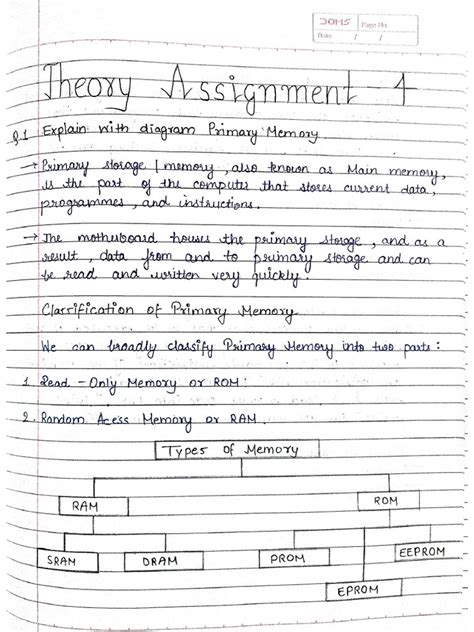 DOMS
Page No.
Date / /
Theory Assignment - 4
Q.1 Explain with diagram Primary Memory
→ Primary storage / memory, also known as Main memory,
is the part of the computer that stores current data,
programmes, and instructions.
→ The motherboard houses the primary storage, and as a
result, data from and to primary storage and can
be read and written very quickly.
Classification of Primary Memory
We can broadly classify Primary Memory into two parts:
1. Read - Only Memory or ROM:
2. Random Acess Memory or RAM.
Types of Memory
RAM ROM
SRAM DRAM PROM EEPROM
EPROM